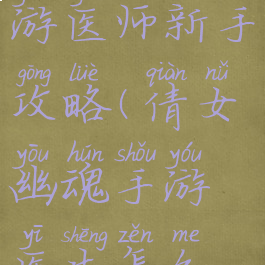 游医师新手
gōng lüè qiàn nǚ
攻略(倩女
yōu hún shǒu yóu
幽魂手游
yī shēng zěn me